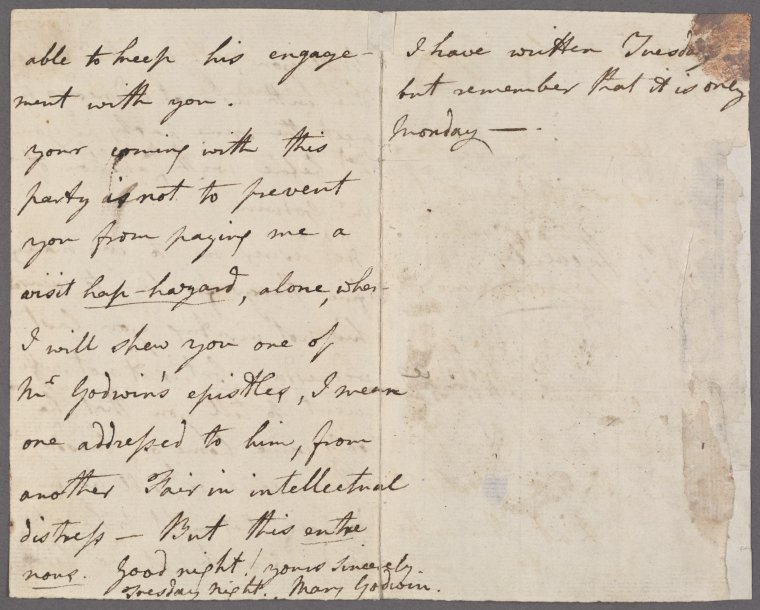 able to keep his engage-
ment with you.
your coming with this
party is not to prevent
you from paying me a
visit hap-hazard, alone, when
I will shew you one of
Mr Godwin's epistles, I mean
one addressed to him, from
another Fair in intellectual
distress — But this entre
nous. Good night! yours sincerely.
Tuesday night. Mary Godwin.
I have written Tuesday
but remember that it is only
Monday —.